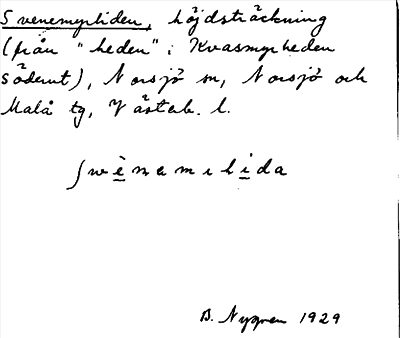 Svenemyrliden, höjdsträckning
(från "heden" i Kvasmyrheden
söderut), Norsjö sn, Norsjö och
Malå tg, Västerb. l.
ʃwènemılida
B. Nygren 1929